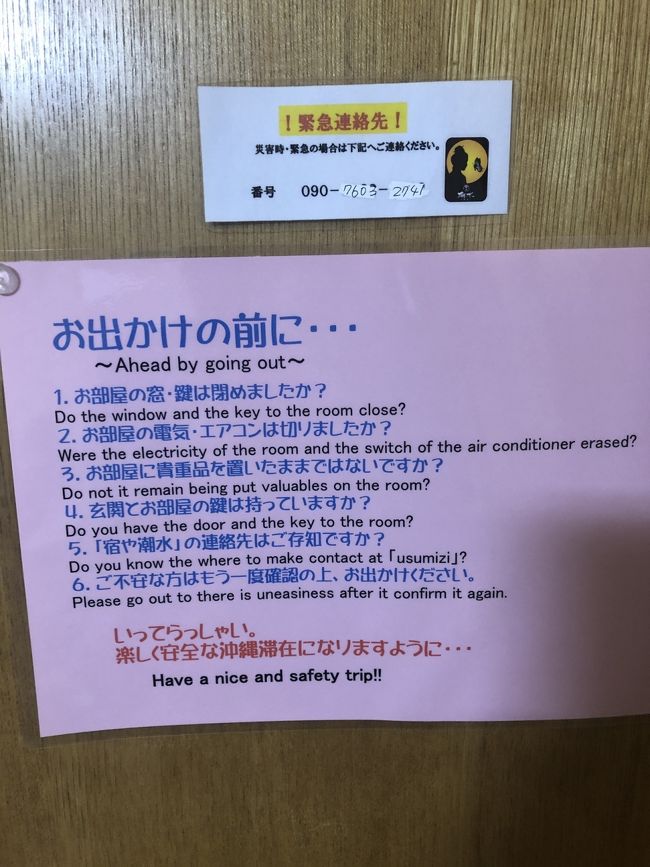 ！緊急連絡先！
災害時・緊急の場合は下記へご連絡ください。
番号 090-7603-2747
お出かけの前に・・・
～Ahead by going out～
1. お部屋の窓・鍵は閉めましたか？
Do the window and the key to the room close?
2. お部屋の電気・エアコンは切りましたか？
Were the electricity of the room and the switch of the air conditioner erased?
3. お部屋に貴重品を置いたままではないですか？
Do not it remain being put valuables on the room?
4. 玄関とお部屋の鍵は持っていますか？
Do you have the door and the key to the room?
5. 「宿や潮水」の連絡先はご存知ですか？
Do you know the where to make contact at 「usumizi」?
6. ご不安な方はもう一度確認の上、お出かけください。
Please go out to there is uneasiness after it confirm it again.
いってらっしゃい。
楽しく安全な沖縄滞在になりますように・・・
Have a nice and safety trip!!